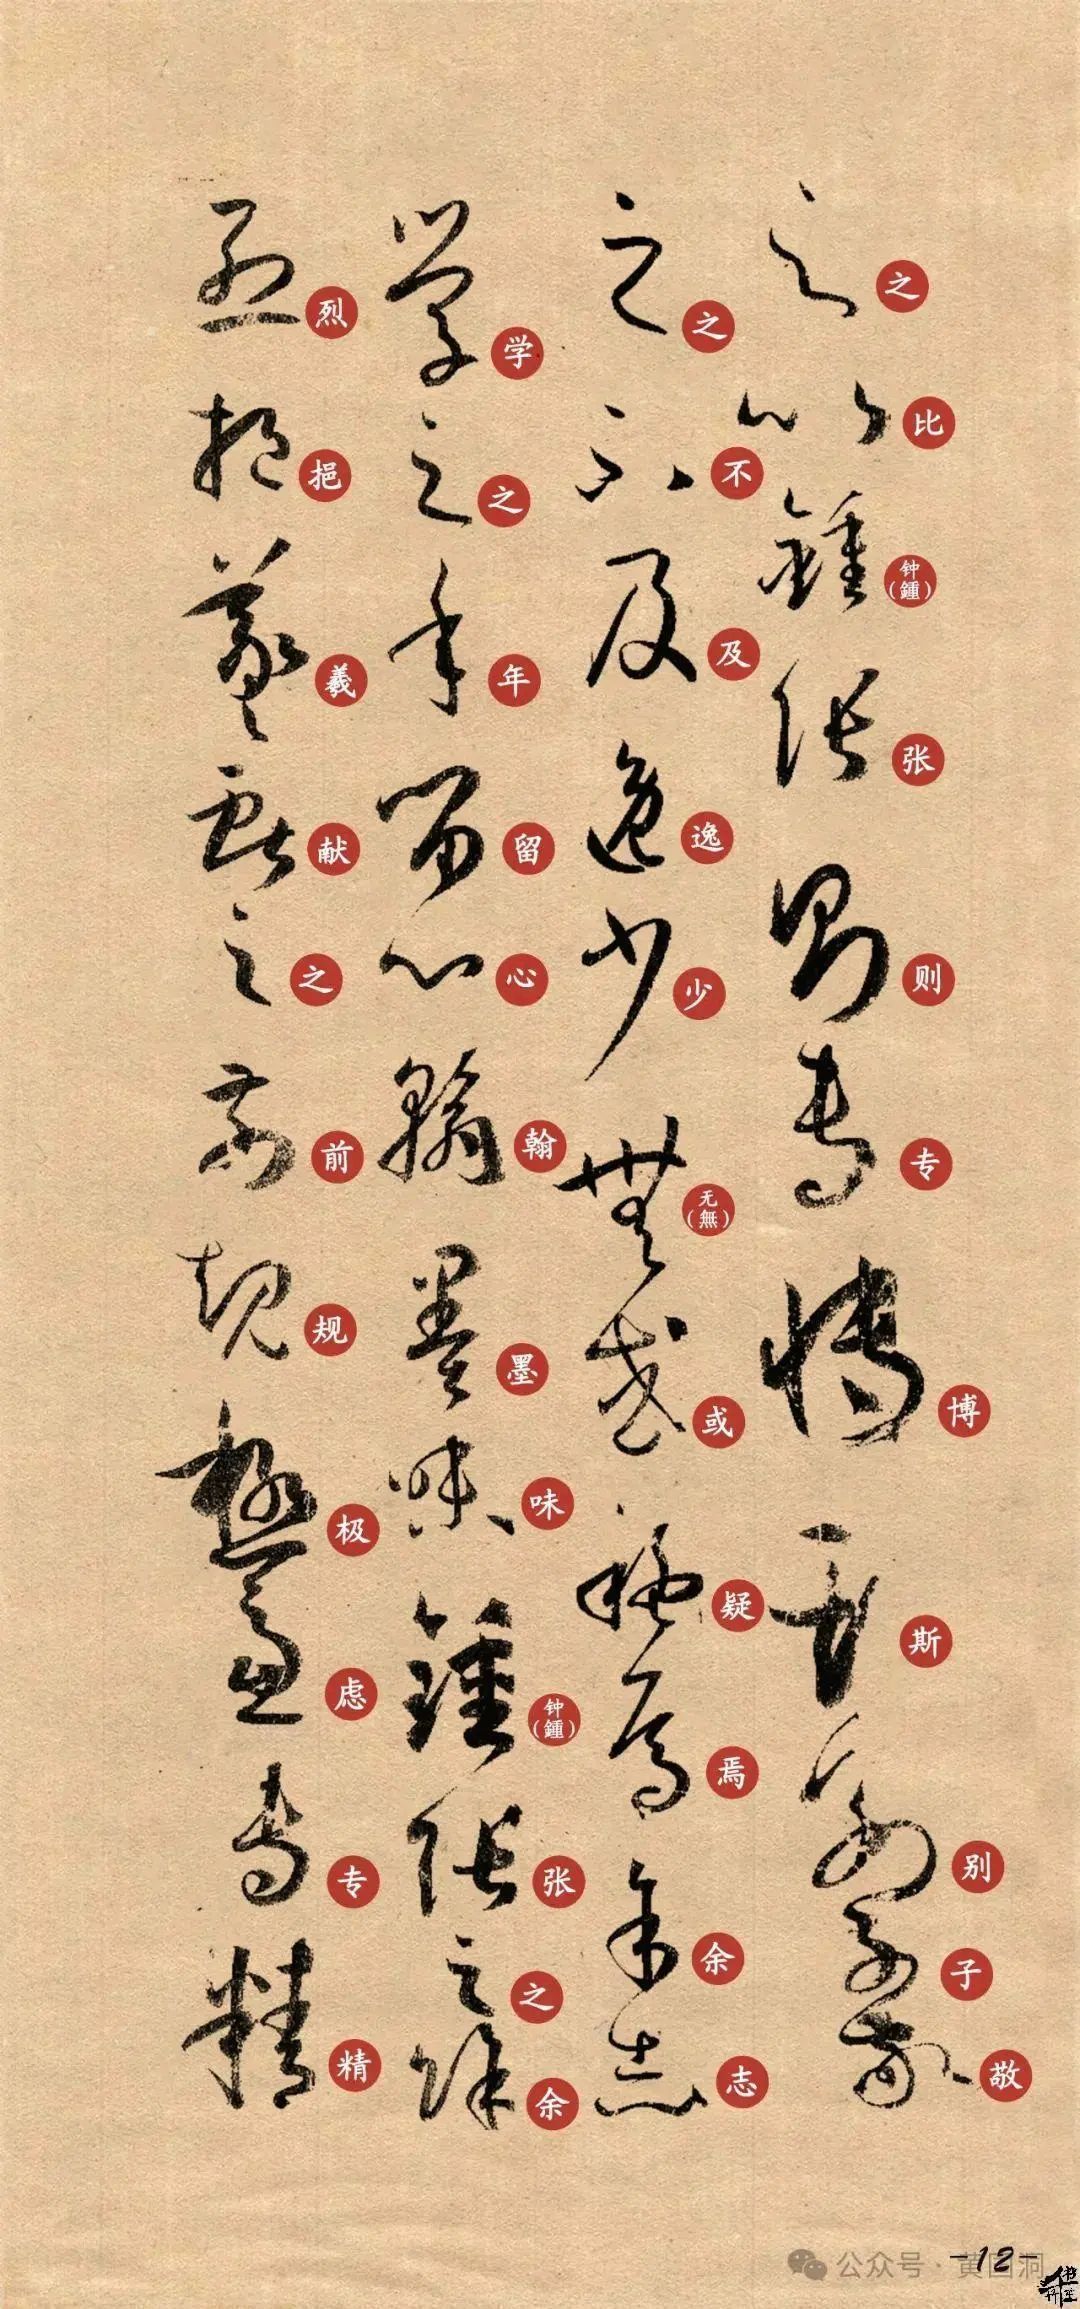 之比钟(鍾)张则专博斯别子敬
之不及逸少无(無)或疑焉余志
学之年留心翰墨味钟(鍾)张之余
烈挹羲献之前规极虑专精
-12-
公众号